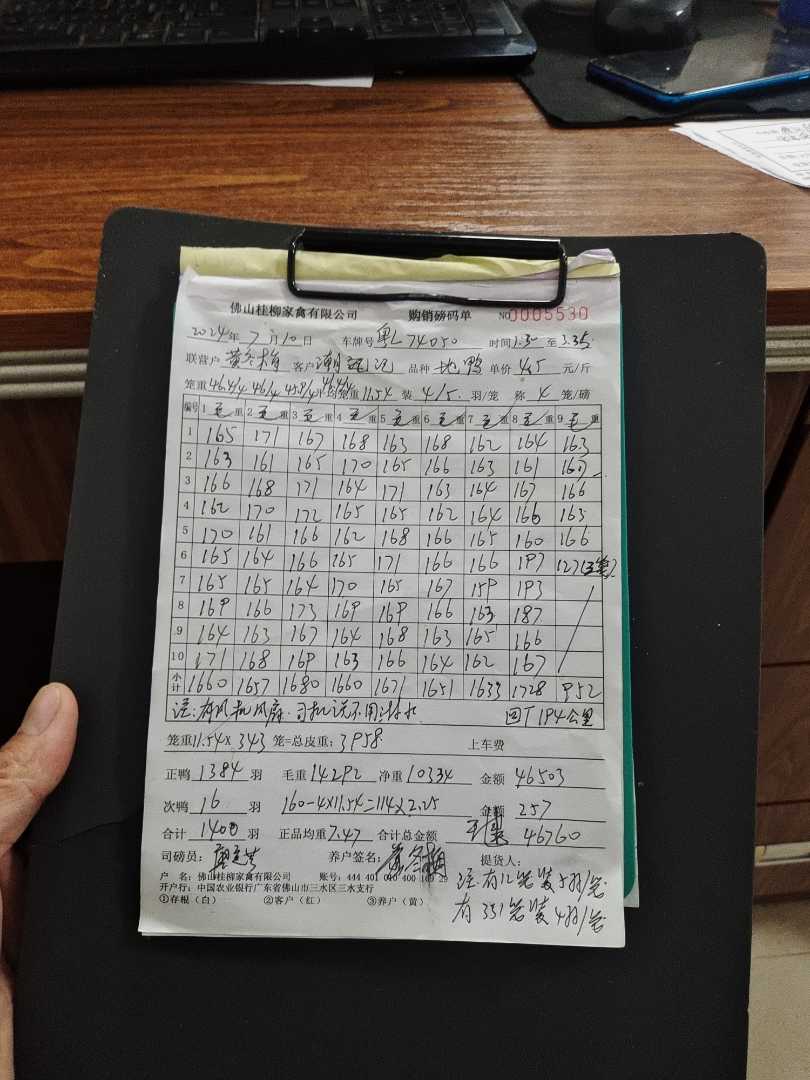 佛山桂柳家禽有限公司 购销磅码单 NO 0005530
2024年7月10日 车牌号 粤L74050 时间1:30至3:35
联营户 黄冬梅 客户 潮 记 品种 地鸭 单价 4.5 元/斤
笼重46.4/4 46/4 平均笼重11.54 装 4/5 羽/笼 称 4 笼/磅
编号 1毛重 2毛重 3毛重 4毛重 5毛重 6毛重 7毛重 8毛重 9毛重
1 165 171 167 168 163 168 162 164 163
2 163 161 165 170 165 166 163 161 167
3 166 168 171 164 171 163 164 167 166
4 162 170 172 165 165 162 164 166 163
5 170 161 166 162 168 166 165 160 166
6 165 164 166 165 171 166 166 197 127(3笼)
7 165 165 164 170 165 167 159 193
8 169 166 173 169 169 166 163 187
9 164 163 167 164 168 163 165 166
10 171 168 169 163 166 164 162 167
小计 1660 1657 1680 1660 1671 1651 1633 1728 952
注:有风机风扇.司机说不用淋水 回厂194公里
笼重11.54× 343 笼=总皮重:3958 上车费
正鸭 1384 羽 毛重14292 净重10334 金额 46503
次鸭 16 羽 160-4×11.54=114×2.25 金额 257
合计 1400 羽 正品均重7.47 合计总金额 46760
司磅员: 养户签名:黄冬梅 提货人:
户 名:佛山桂柳家禽有限公司 账号:444 401 010 400 169 29
开户行:中国农业银行广东省佛山市三水区三水支行
①存根(白) ②客户(红) ③养户(黄)
注有12笼装5羽/笼
有331笼装4羽/笼